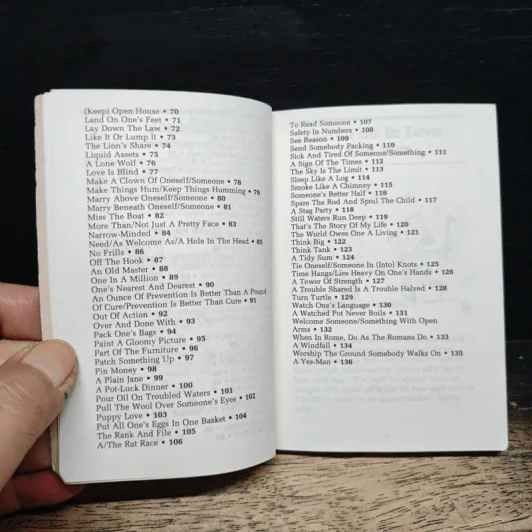 (Keep) Open House • 70
Land On One's Feet • 71
Lay Down The Law • 72
Like It Or Lump It • 73
The Lion's Share • 74
Liquid Assets • 75
A Lone Wolf • 76
Love Is Blind • 77
Make A Clown Of Oneself/Someone • 78
Make Things Hum/Keep Things Humming • 79
Marry Above Oneself/Someone • 80
Marry Beneath Oneself/Someone • 81
Miss The Boat • 82
More Than/Not Just A Pretty Face • 83
Narrow-Minded • 84
Need/As Welcome As/A Hole In The Head • 85
No Frills • 86
Off The Hook • 87
An Old Master • 88
One In A Million • 89
One's Nearest And Dearest • 90
An Ounce Of Prevention Is Better Than A Pound
Of Cure/Prevention Is Better Than Cure • 91
Out Of Action • 92
Over And Done With • 93
Pack One's Bags • 94
Paint A Gloomy Picture • 95
Part Of The Furniture • 96
Patch Something Up • 97
Pin Money • 98
A Plain Jane • 99
A Pot-Luck Dinner • 100
Pour Oil On Troubled Waters • 101
Pull The Wool Over Someone's Eyes • 102
Puppy Love • 103
Put All One's Eggs In One Basket • 104
The Rank And File • 105
A/The Rat Race • 106
To Read Someone • 107
Safety In Numbers • 108
See Reason • 109
Send Somebody Packing • 110
Sick And Tired Of Someone/Something • 111
A Sign Of The Times • 112
The Sky Is The Limit • 113
Sleep Like A Log • 114
Smoke Like A Chimney • 115
Someone's Better Half • 116
Spare The Rod And Spoil The Child • 117
A Stag Party • 118
Still Waters Run Deep • 119
That's The Story Of My Life • 120
The World Owes One A Living • 121
Think Big • 122
Think Tank • 123
A Tidy Sum • 124
Tie Oneself/Someone In (Into) Knots • 125
Time Hangs/Lies Heavy On One's Hands • 126
A Tower Of Strength • 127
A Trouble Shared Is A Trouble Halved • 128
Turn Turtle • 129
Watch One's Language • 130
A Watched Pot Never Boils • 131
Welcome Someone/Something With Open
Arms • 132
When In Rome, Do As The Romans Do • 133
A Windfall • 134
Worship The Ground Somebody Walks On • 135
A Yes-Man • 136